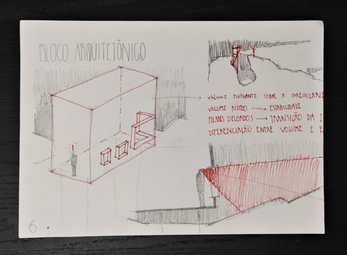 BLOCO ARQUITETÔNICO
VOLUME FLUTUANTE SOBRE A
VOLUME ÁRIDO → ESTABILIDADE
PILARES DELGADOS → TRANSIÇÃO DA
DIFERENCIAÇÃO ENTRE VOLUME E E
6